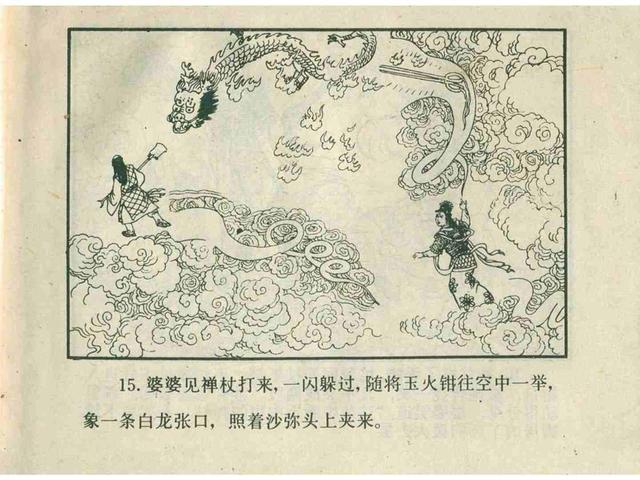 15. 婆婆见禅杖打来，一闪躲过，随将玉火钳往空中一举，
象一条白龙张口，照着沙弥头上夹来。